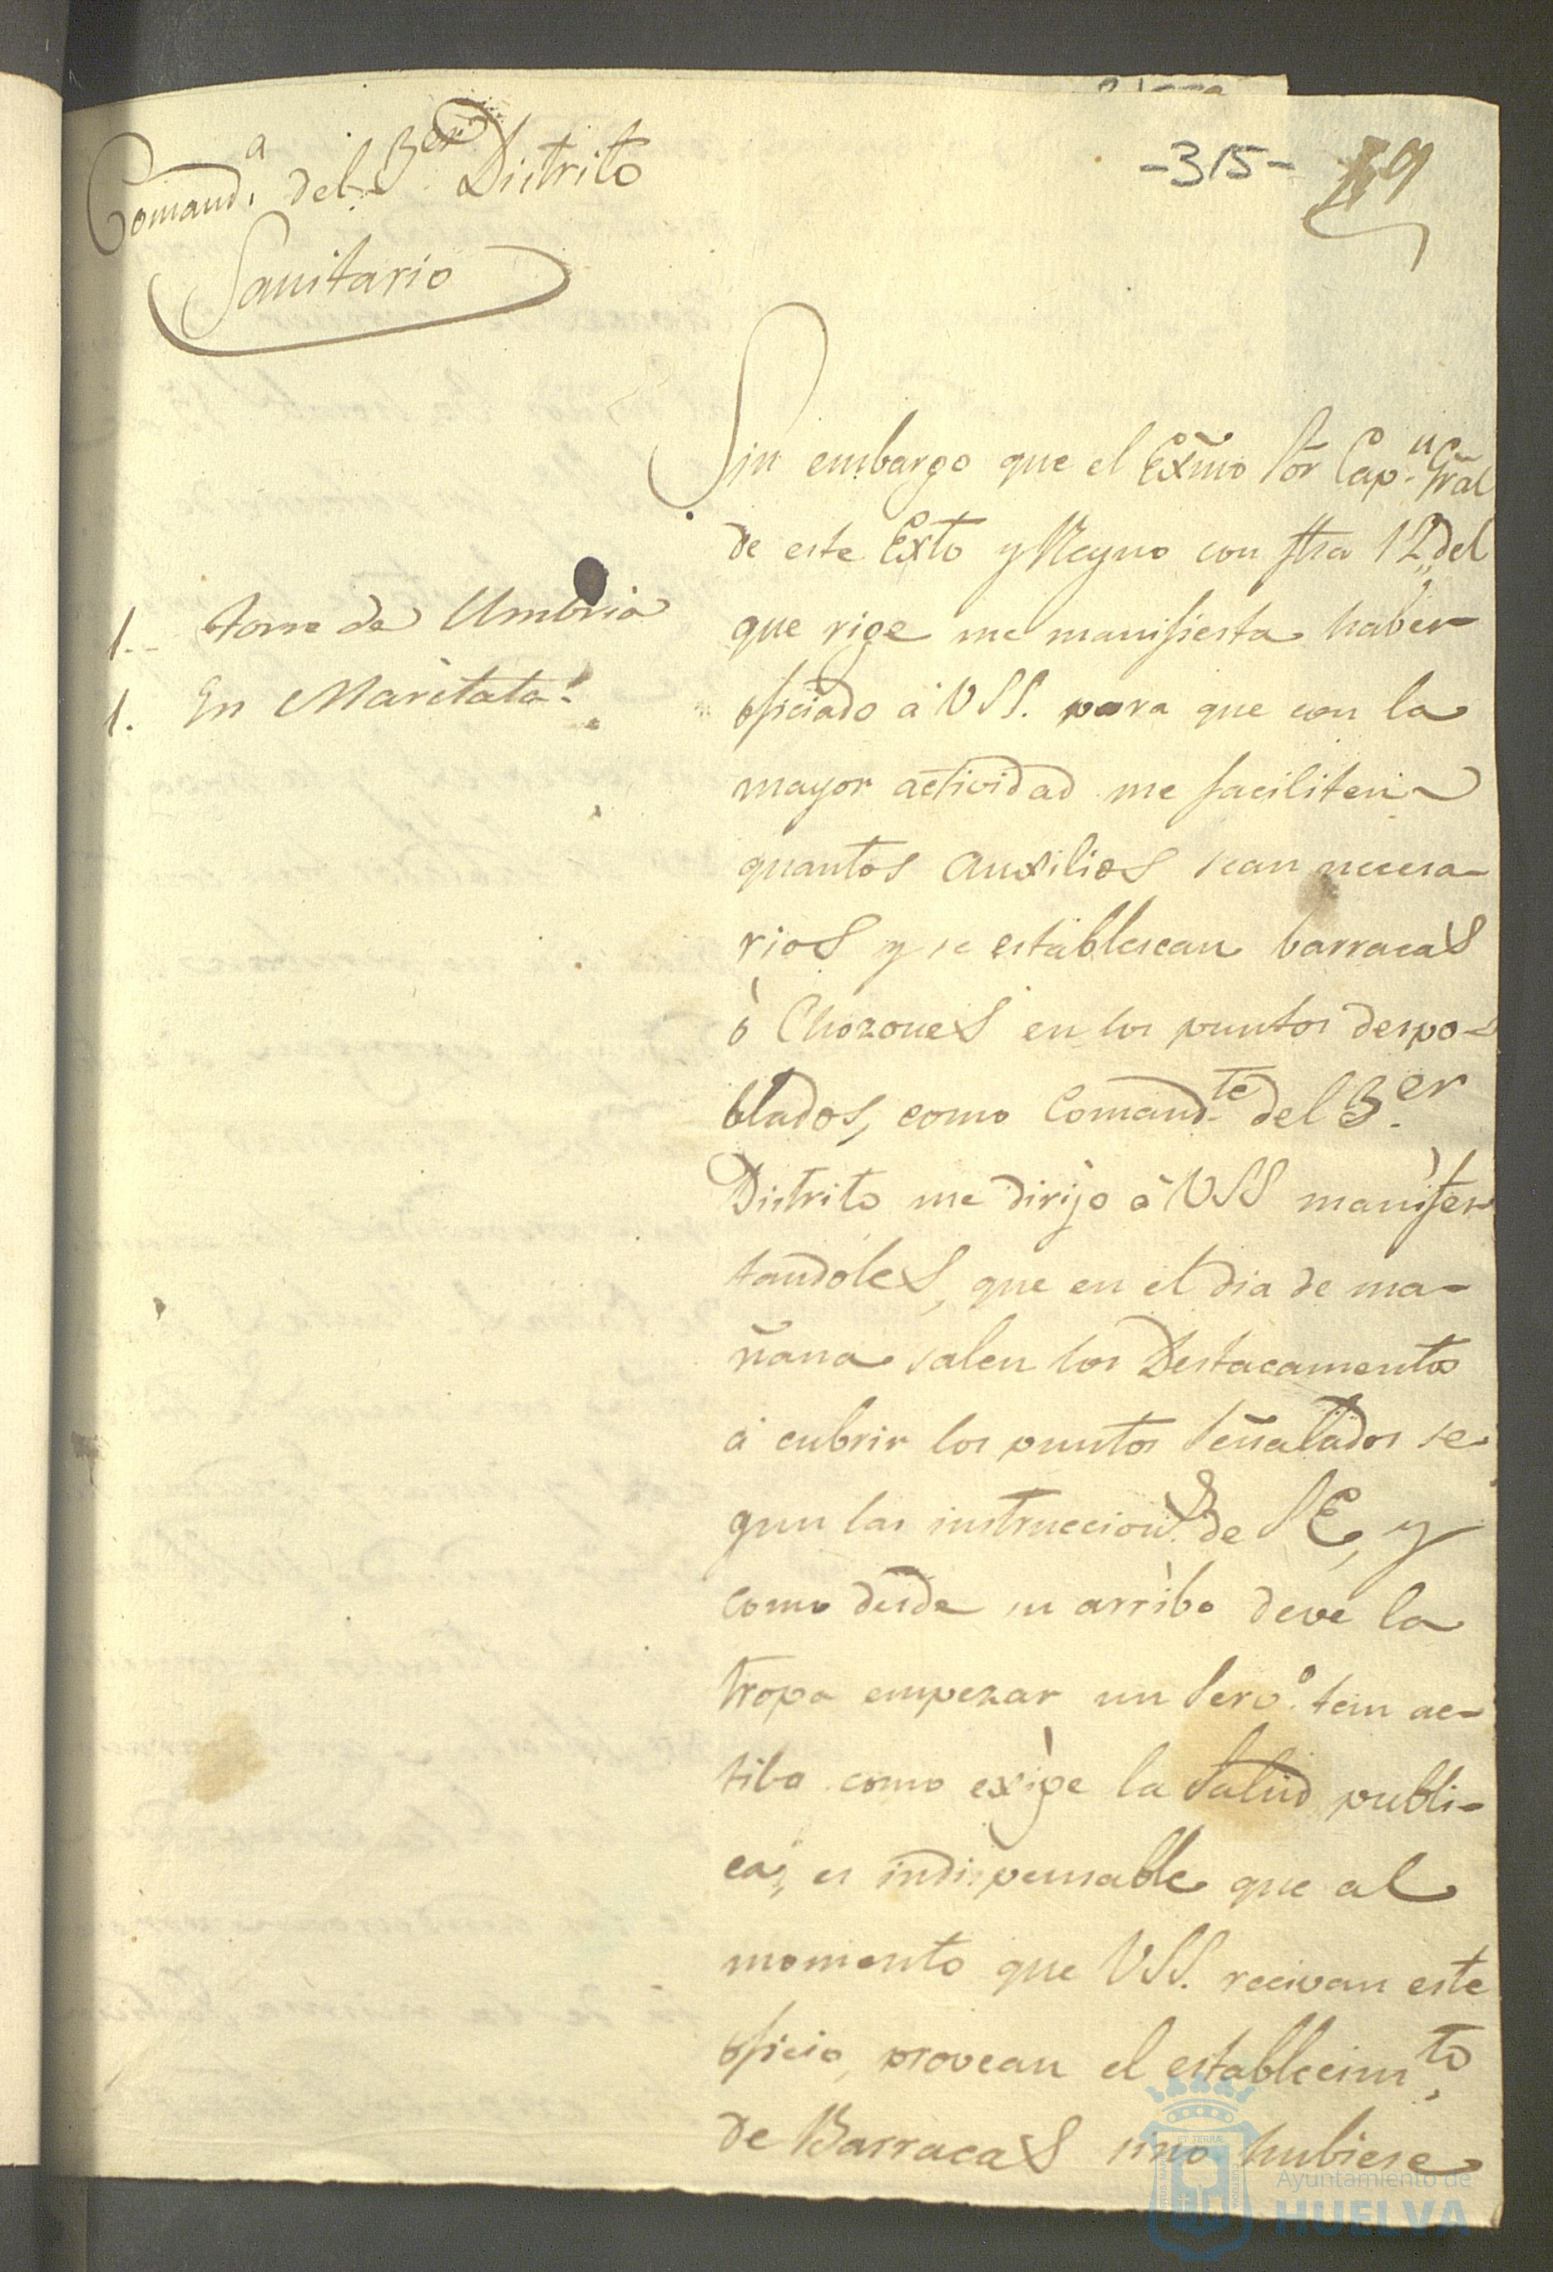 Comand.ª del 3.er Distrito
Sanitario
-315-
Sin embargo que el Exm̃o Sõr Cap.n Grãl
de este Exto y Reyno con fha 12,, del
que rige me manifiesta haber
oficiado á VSS. para que con la
mayor actividad me faciliten
quantos auxilios sean necesa-
rios y se establescan barracas
ó Chozones en los puntos despo-
blados, como Comand.te del 3.er
Distrito me dirijo á VSS manifes
tandoles, que en el dia de ma-
ñana salen los Destacamentos
á cubrir los puntos señalados se
gun las instruccion.s de SE, y
como desde su arribo deve la
tropa empezar un serv.o tan ac-
tibo como exige la salud publi-
ca, es indispensable que al
momento que VSS. recivan este
oficio, provean el establecim.to
de Barracas sino hubiese
1.. torre de Umbria
1. En Maritata!
Ayuntamiento de
HUELVA